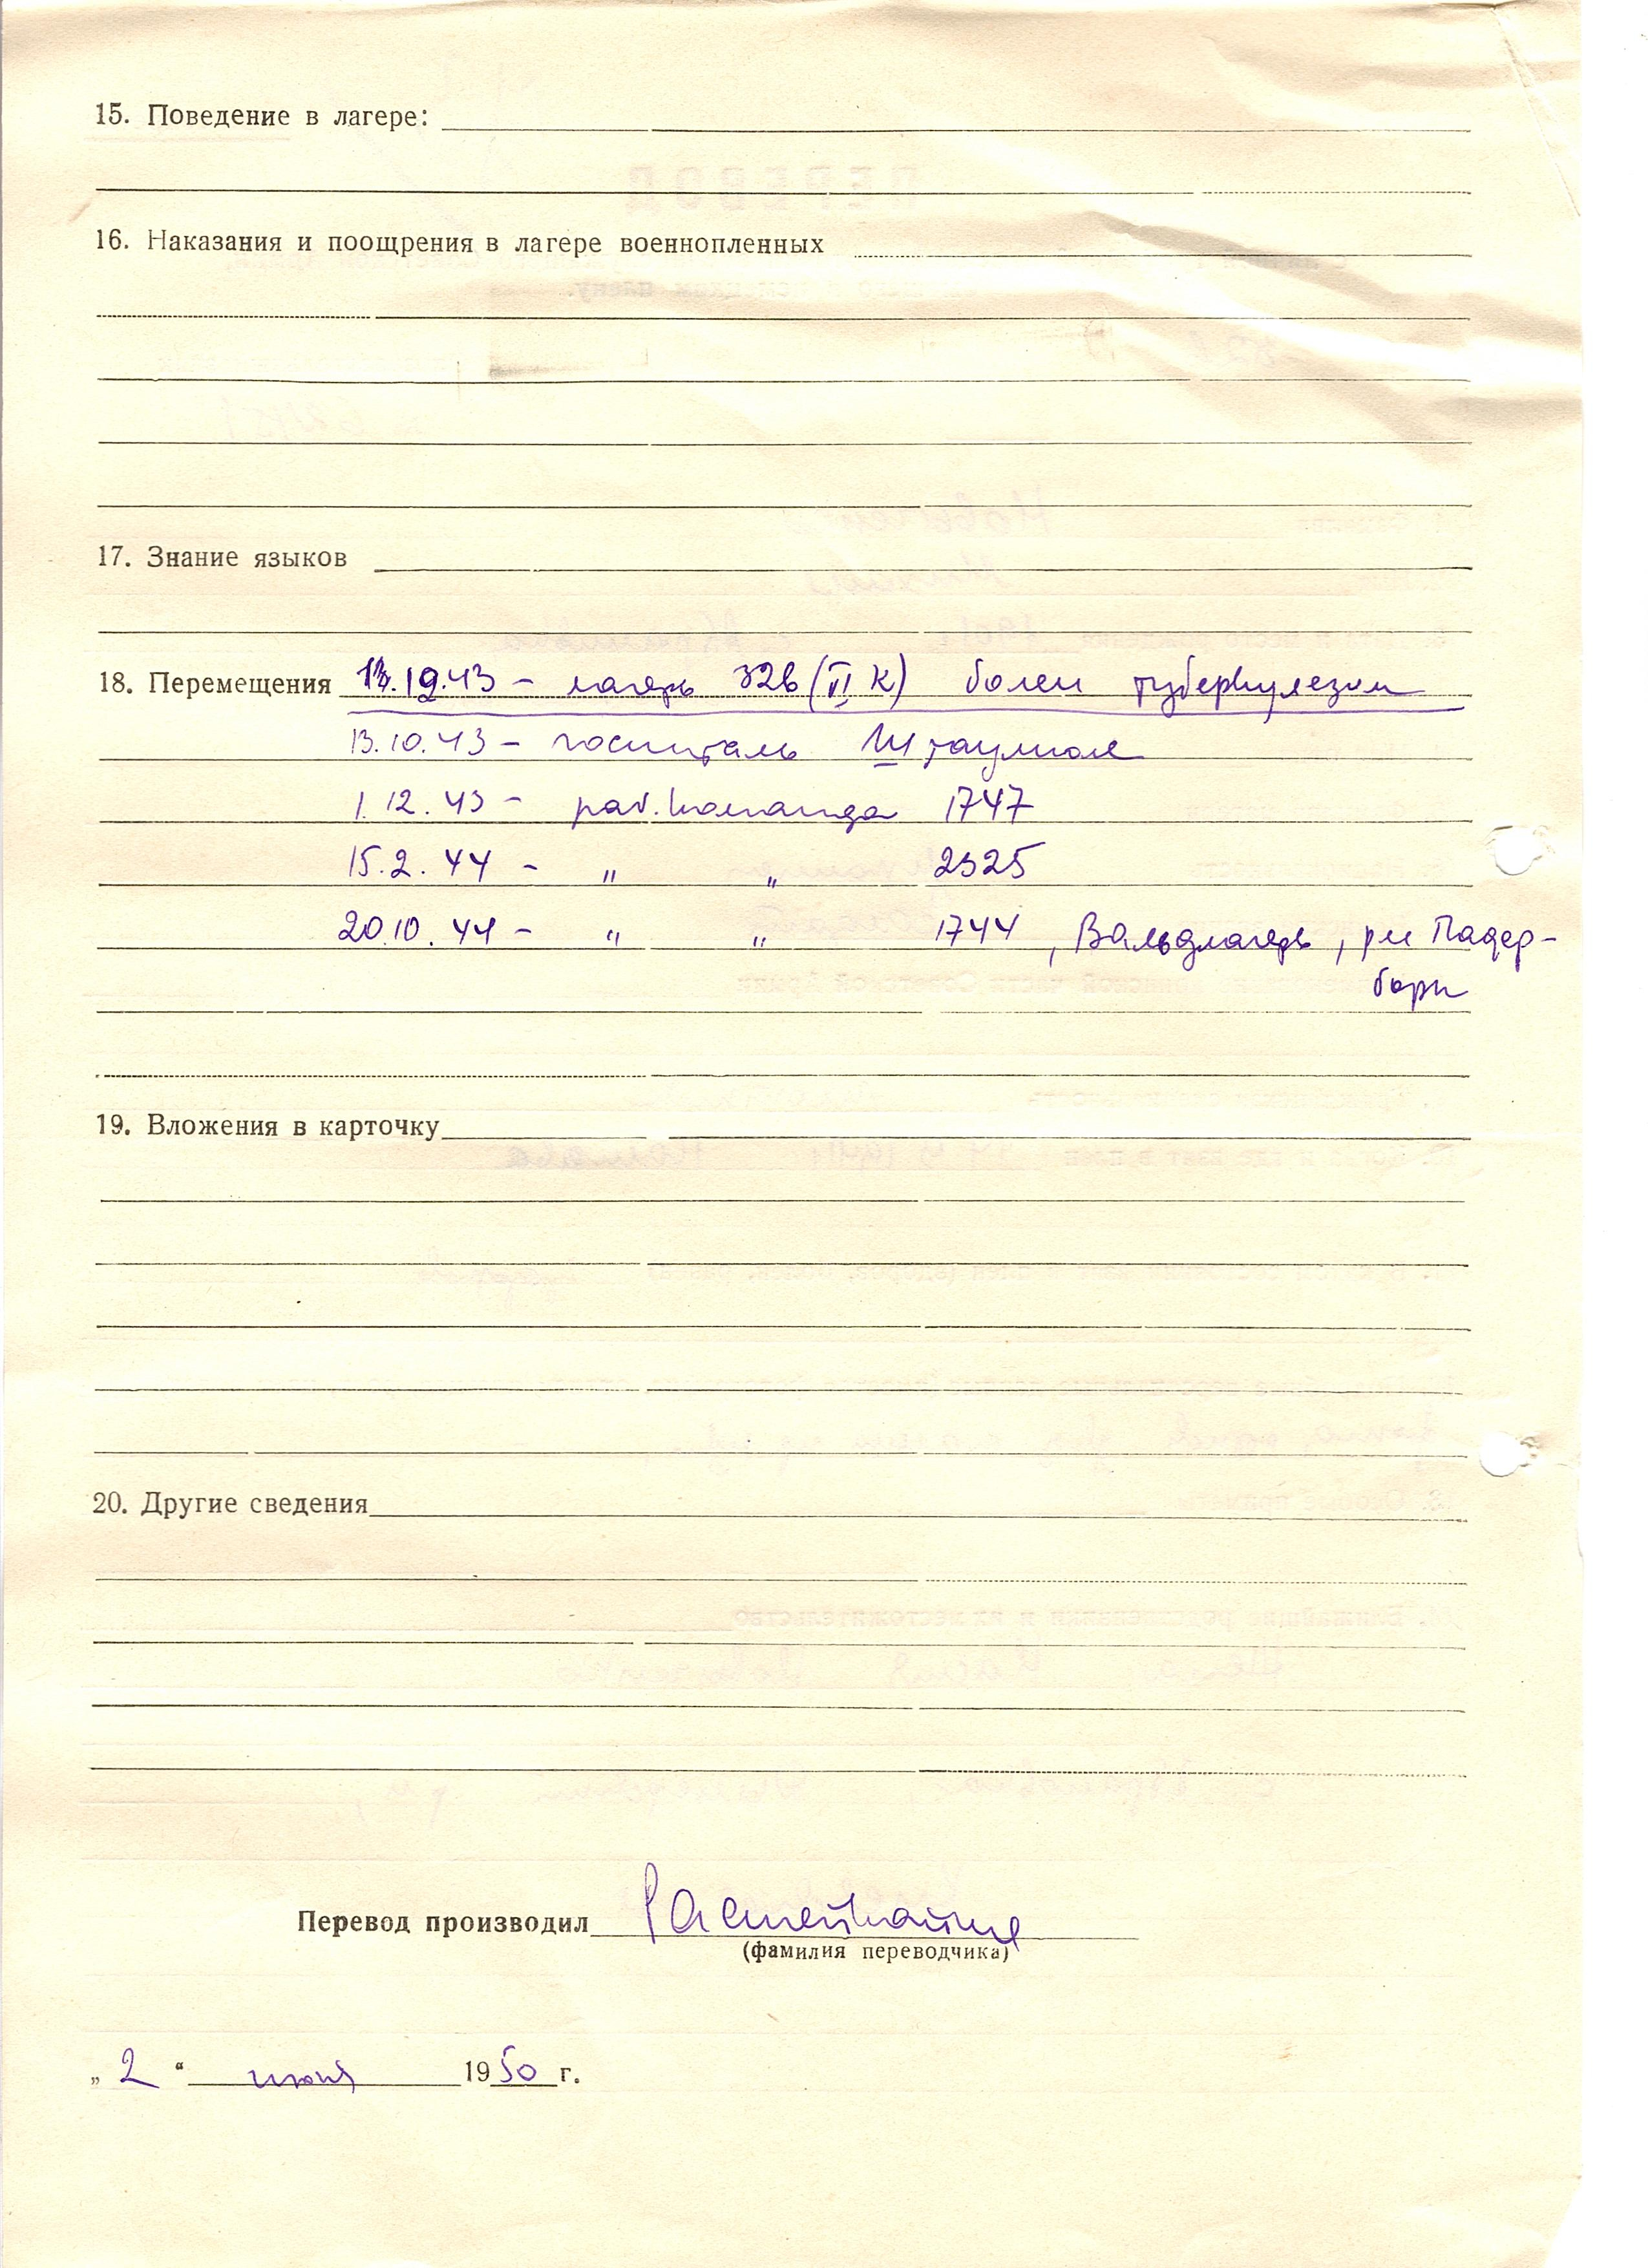 15. Поведение в лагере:
16. Наказания и поощрения в лагере военнопленных
17. Знание языков
18. Перемещения 13.10.43 – лагерь 326 (VI К) болен туберкулезом
13.10.43 – госпиталь Штаумюле
1.12.43 – раб. команда 1747
15.2.44 – " " 2325
20.10.44 – " " 1744, Вальдлагерь, р-н Падер-
борн
19. Вложения в карточку
20. Другие сведения
Перевод производил
(фамилия переводчика)
„2“ июня 1950 г.